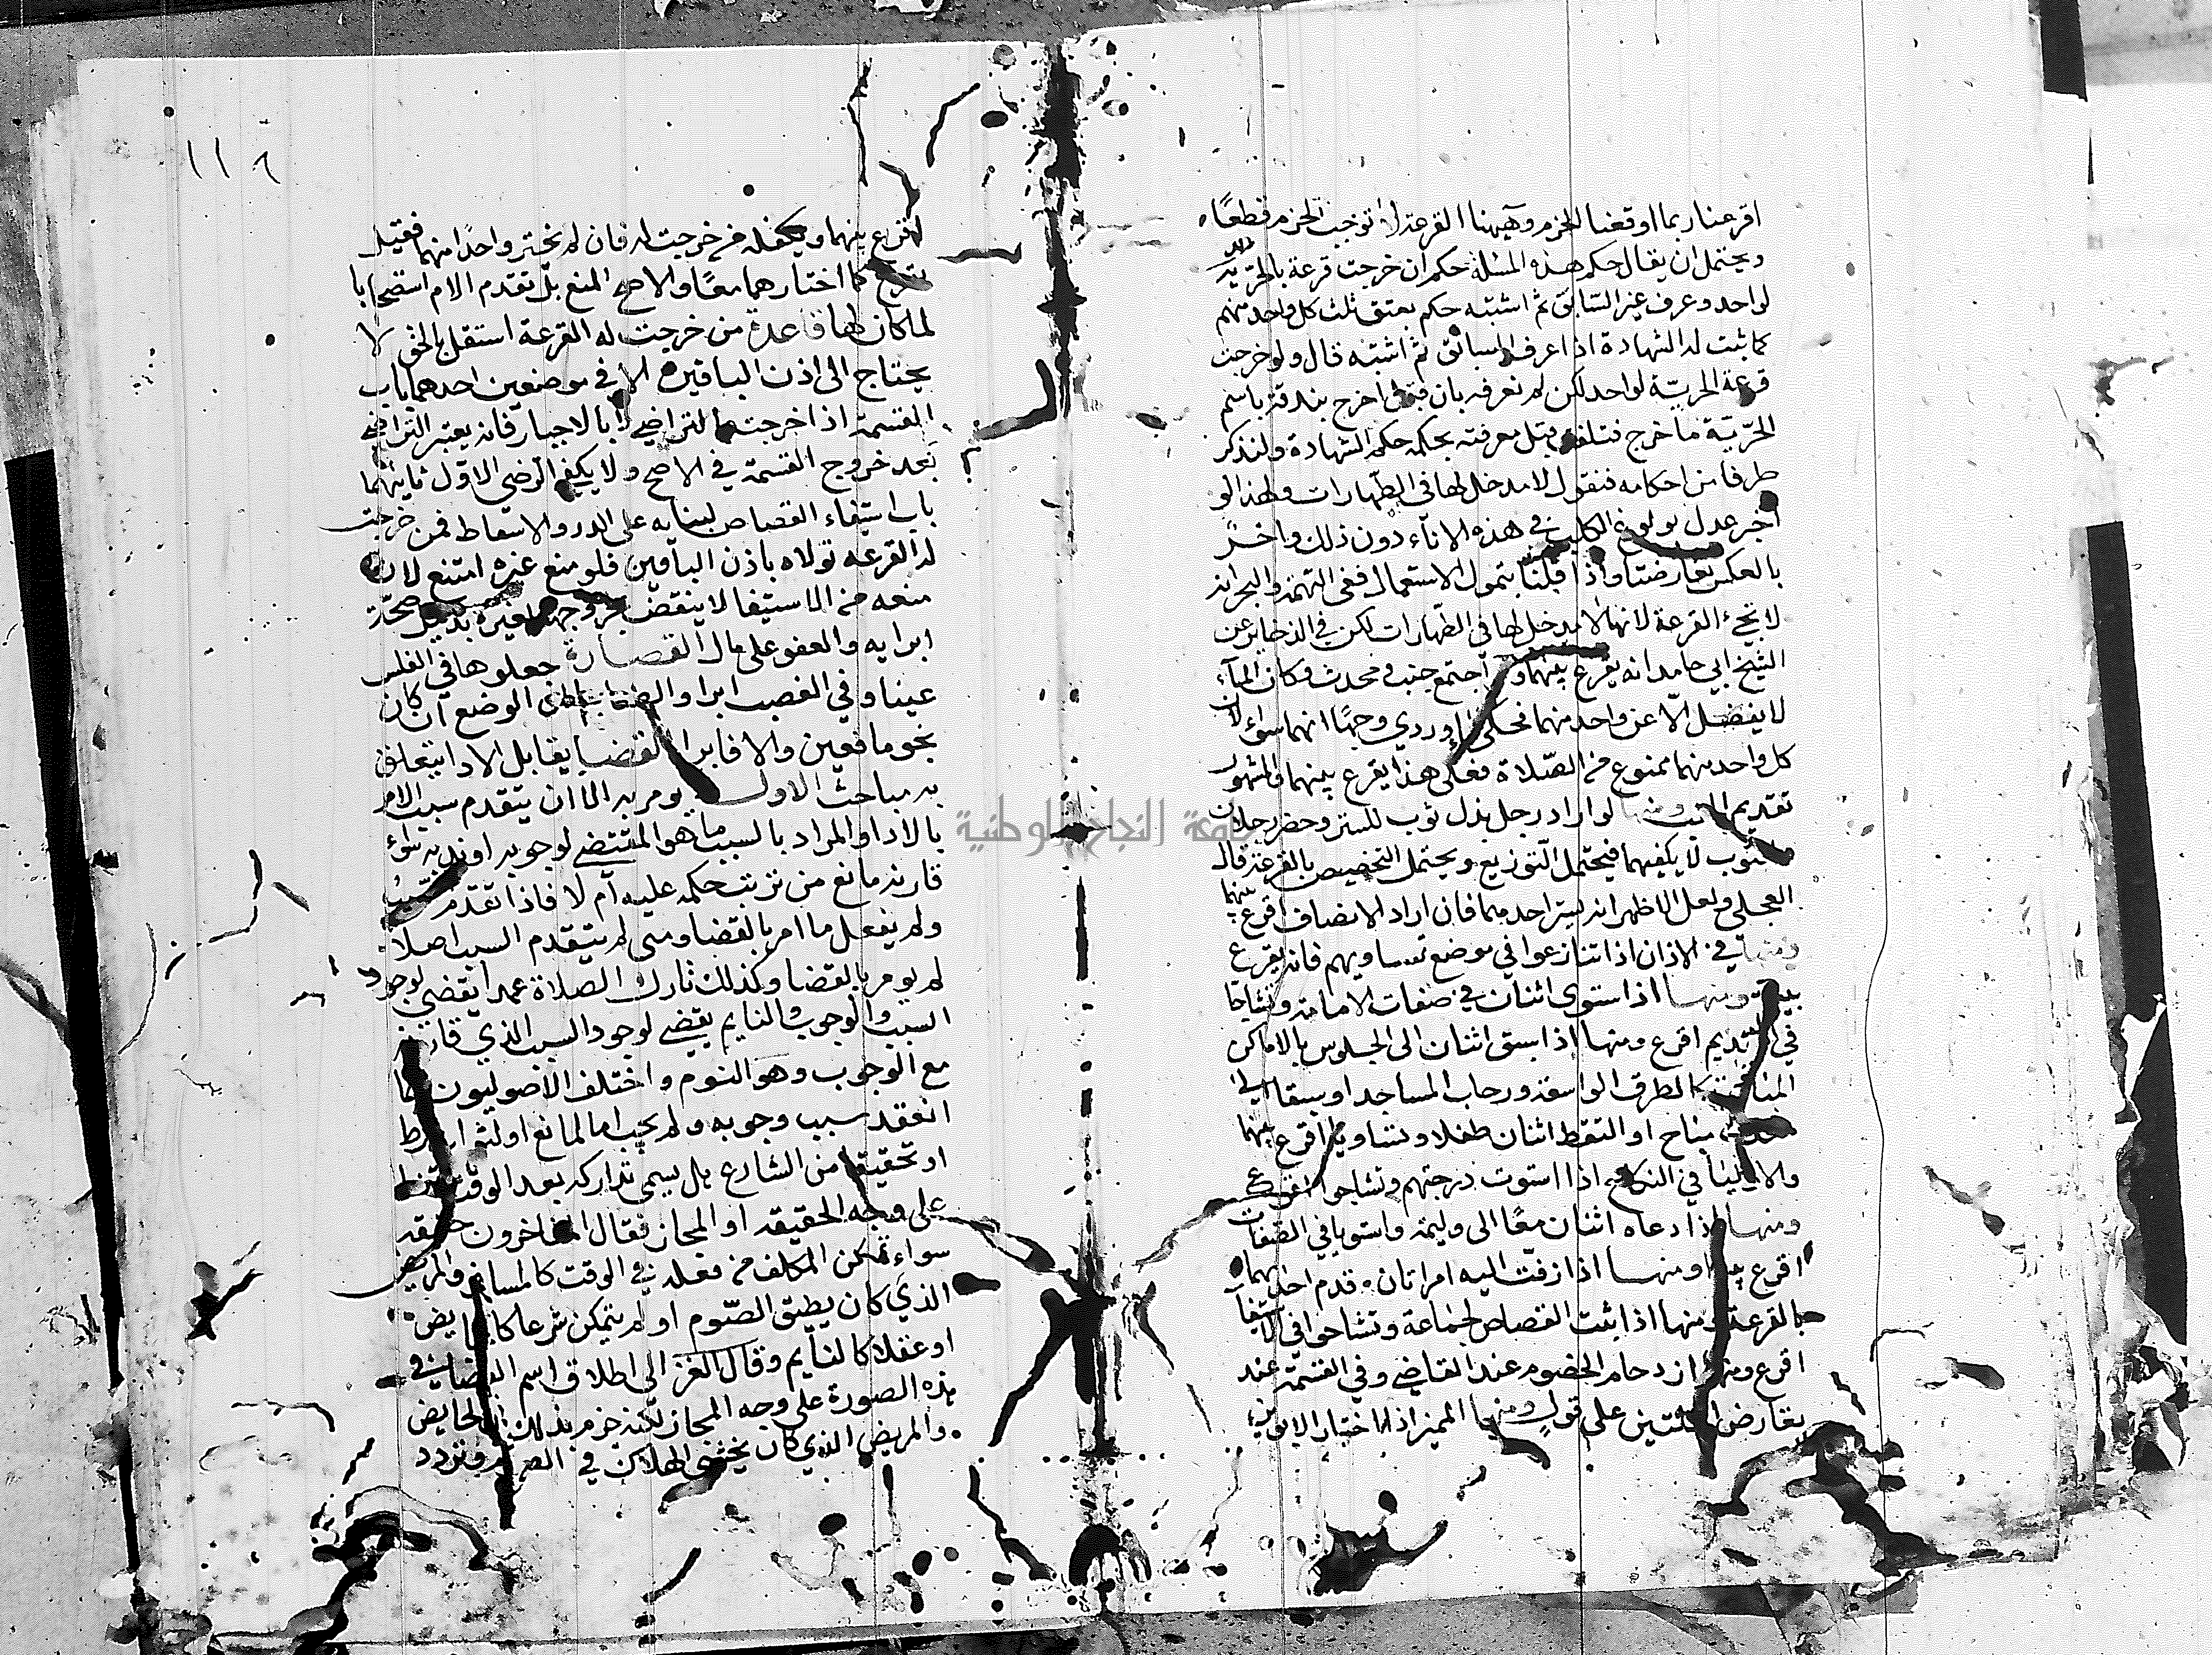 اقرعنا ربما اوقعنا الحزم وههنا القرعة لا توجب الحزم قطعًا
ويحتمل ان يقال حكم هذه المسئلة حكم ان خرجت قرعة بالحرية
لواحد وعرف عين السابق ثم اشتبه حكم بعتق ثلث كل واحد منهم
كما ثبت له الشهادة اذا عرف السابق ثم اشتبه قال ولو خرجت
قرعة الحرية لواحد لكن لم نعرفه بان اخرج بندقة باسم
الحرّية ما خرج فتلفت قبل معرفته بحكم حكم الشهادة ولنذكر
طرفا من احكامه فنقول لا مدخل لها في الطهارات ولهذا لو
اخبر عدل بولوغ الكلب في هذه الاناء دون ذلك واخر
بالعكس تعارضتا واذا قلنا الاستعمال ففي التهمة والبحر انه
لا تجيء القرعة لانها لا مدخل لها في الطهارات لكن في الذخاير عن
الشيخ ابي حامد انه يقرع بينهما ولو اجتمع جنب ومحدث وكان الماء
لا يفضل الا عن واحد منهما فحكى وجهًا انهما سواء لان
كل واحد منهما ممنوع من الصلاة فعلى هذا يقرع بينهما والمشهور
تقديم ومنها لو اراد رجل بذل ثوب للستر وحضر رجلان
لا يكفيهما فيحتمل التوزيع ويحتمل التخصيص بالقرعة قال
العجلي ولعل الاظهر انه يستر احدهما فان اراد الانصاف اقرع بينهما
ومنها في الاذان اذا تنازعوا في موضع تساويهم فانه يقرع
ومنها اذا استوى اثنان في صفات الامامة وتشاحا
في التقديم اقرع ومنها اذا سبق اثنان الى الجلوس بالاماكن
كالطرق الواسعة ورحاب المساجد او سبقا الى
مباح او التقط اثنان طفلا وتساويا اقرع بينهما
والاوليا في النكاح اذا استوت درجتهم وتشاحوا اقرع
ومنها اذا دعاه اثنان معًا الى وليمة واستويا في الصفات
اقرع ومنها اذا زفت اليه امراتان قدم احداهما
بالقرعة ومنها اذا ثبت القصاص لجماعة وتشاحوا في الاستيفا
اقرع ومنها ازدحام الخصوم عند القاضي وفي القسمة عند
تعارض البينتين على قول ومنها المميز اذا اختار الابوين
١١٦
اقرع بينهما ويكفله من خرجت له فان لم يختر واحدًا منهما فقيل
يقرع كما اختارهما معًا والاصح المنع بل تقدم الام استصحابا
لما كان لها قاعدة من خرجت له القرعة استقل بالحق لا
يحتاج الى اذن الباقين الا في موضعين احدهما باب
القسمة اذا خرجت بالتراضي لا بالاجبار فانه يعتبر التراضي
بعد خروج القسمة في الاصح ولا يكفي الرضى الاول ثانيهما
باب استيفاء القصاص لبنايه على الدرء والاسقاط فمن خرجت
له القرعة تولاه باذن الباقين فلو منع غيره امتنع لان
منعه من الاستيفا لا ينقض لغيره بدليل صحة
ابرايه والعفو على مال القصارة جعلوها في الفلس
عينا وفي الغصب اثرا الوضع ان كان
نحو ما فعين والا فاثر القضا يقابل الادا يتعلق
به مباحث الاول يومر به الا ان يتقدم سبب الامر
بالادا والمراد بالسبب ما هو المقتضي لوجوبه او ندبه سواء
قارنه مانع من ترتب حكمه عليه ام لا فاذا تقدم السبب
ولم يفعل ما امر بالقضا ومتى لم يتقدم السبب اصلا
لم يومر بالقضا وكذلك تارك الصلاة عمدا يقضي لوجود
السبب والوجوب والنايم يقضي لوجود السبب الذي قارنه
مع الوجوب وهو النوم واختلف الاصوليون
انعقد سبب وجوبه ولم يجب اما لمانع او
او تحقيقا من الشارع هل يسمى تداركه بعد الوقت
على وجه الحقيقة او المجاز فقال المتاخرون حقيقة
سواء تمكن المكلف من فعله في الوقت كالمسافر والمريض
الذي كان يطيق الصوم او لم يتمكن شرعا كالحايض
او عقلا كالنايم وقال الغزالي اطلاق اسم القضا في
هذه الصورة على وجه المجاز لكنه جزم بذلك في الحايض
والمريض الذي كان يخشى الهلاك في الصوم وتردد
جامعة النجاح الوطنية